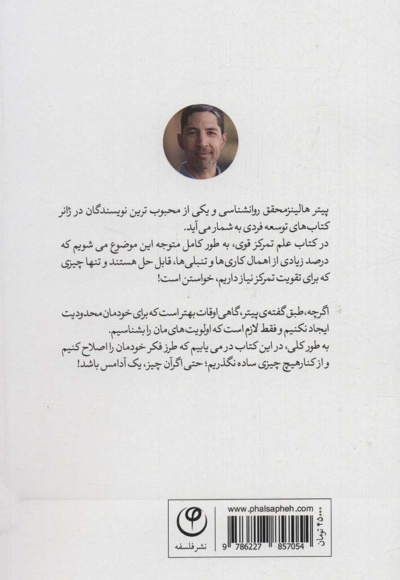 پیتر هالینز محقق روانشناسی و یکی از محبوب ترین نویسندگان در ژانر
کتاب‌های توسعه فردی به شمار می‌آید.
در کتاب علم تمرکز قوی، به طور کامل متوجه این موضوع می شویم که
درصد زیادی از اهمال کاری‌ها و تنبلی‌ها، قابل حل هستند و تنها چیزی
که برای تقویت تمرکز نیاز داریم، خواستن است!
اگرچه، طبق گفته‌ی پیتر، گاهی اوقات بهتر است که برای خودمان محدودیت
ایجاد نکنیم و فقط لازم است که اولویت‌های مان را بشناسیم.
به طور کلی، در این کتاب در می یابیم که طرز فکر خودمان را اصلاح کنیم
و از کنار هیچ چیزی ساده نگذریم؛ حتی اگر آن چیز، یک آدامس باشد!
نشر فلسفه
www.phalsapheh.com
9 786227 857054
۴۵۰۰۰ تومان